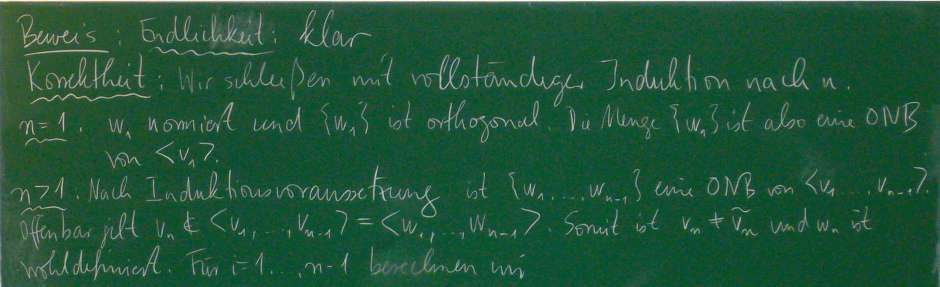 Beweis: Endlichkeit: klar
Korrektheit: Wir schließen mit vollständiger Induktion nach n.
n=1. w₁ normiert und {w₁} ist orthogonal. Die Menge {w₁} ist also eine ONB
von <v₁>.
n>1. Nach Induktionsvoraussetzung ist {w₁,...,w_{n-1}} eine ONB von <v₁,...,v_{n-1}>.
Offenbar gilt v_n ∉ <v₁,...,v_{n-1}> = <w₁,...,w_{n-1}>. Somit ist v_n ≠ ṽ_n und w_n ist
wohldefiniert. Für i=1...,n-1 berechnen wir